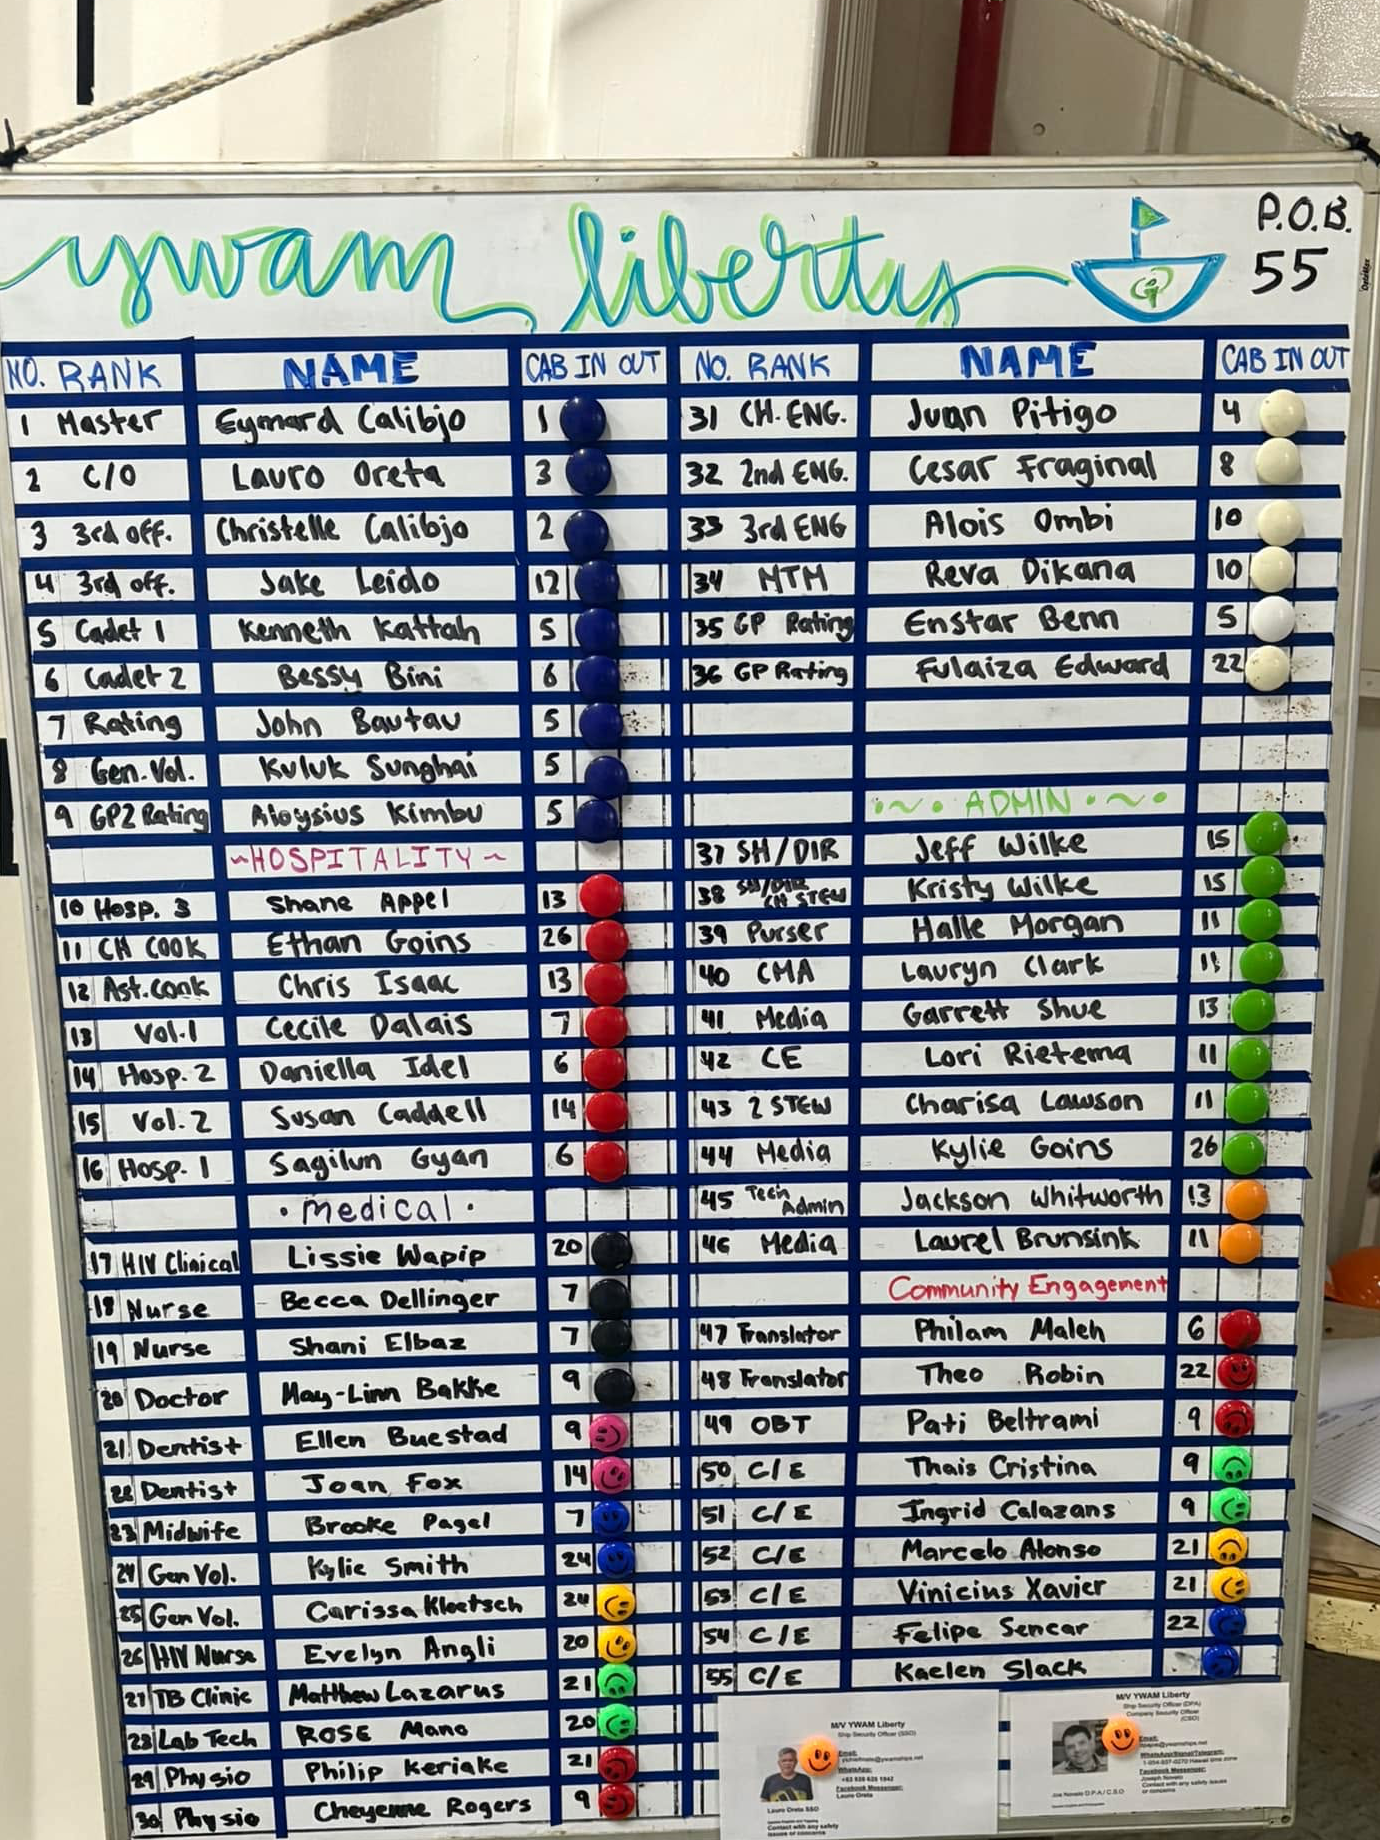 ywam liberty
P.O.B.
55
NO. RANK NAME CAB IN OUT
1 Master Eymard Calibjo 1
2 C/O Lauro Oreta 3
3 3rd off. Christelle Calibjo 2
4 3rd off. Jake Leido 12
5 Cadet 1 Kenneth Kattah 5
6 Cadet 2 Bessy Bini 6
7 Rating John Bautau 5
8 Gen. Vol. Kuluk Sunghai 5
9 GP2 Rating Aloysius Kimbu 5
~HOSPITALITY~
10 Hosp. 3 Shane Appel 13
11 CH COOK Ethan Goins 26
12 Ast. Cook Chris Isaac 13
13 Vol. 1 Cecile Dalais 7
14 Hosp. 2 Daniella Idel 6
15 Vol. 2 Susan Caddell 14
16 Hosp. 1 Sagilun Gyan 6
· medical ·
17 HIV Clinical Lissie Wapip 20
18 Nurse Becca Dellinger 7
19 Nurse Shani Elbaz 7
20 Doctor May-Linn Bakke 9
21 Dentist Ellen Buestad 9
22 Dentist Joan Fox 14
23 Midwife Brooke Pagel 7
24 Gen Vol. Kylie Smith 24
25 Gen Vol. Carissa Kloetsch 24
26 HIV Nurse Evelyn Angli 20
27 TB Clinic Matthew Lazarus 21
28 Lab Tech ROSE Mano 20
29 Physio Philip Keriake 21
30 Physio Cheyenne Rogers 9
NO. RANK NAME CAB IN OUT
31 CH. ENG. Juan Pitigo 4
32 2nd ENG. Cesar Fraginal 8
33 3rd ENG Alois Ombi 10
34 MTM Reva Dikana 10
35 GP Rating Enstar Benn 5
36 GP Rating Fulaiza Edward 22
·~·ADMIN·~·
37 SH/DIR Jeff Wilke 15
38 SH/DIR CH STEW Kristy Wilke 15
39 Purser Halle Morgan 11
40 CMA Lauryn Clark 11
41 Media Garrett Shue 13
42 CE Lori Rietema 11
43 2 STEW Charisa Lawson 11
44 Media Kylie Goins 26
45 Tech Admin Jackson Whitworth 13
46 Media Laurel Brunsink 11
Community Engagement
47 Translator Philam Maleh 6
48 Translator Theo Robin 22
49 OBT Pati Beltrami 9
50 C/E Thais Cristina 9
51 C/E Ingrid Calazans 9
52 C/E Marcelo Alonso 21
53 C/E Vinicius Xavier 21
54 C/E Felipe Sencar 22
55 C/E Kaelen Slack
M/V YWAM Liberty
Ship Security Officer (SSO)
Email:
WhatsApp:
Facebook Messenger:
Lauro Oreta
Lauro Oreta SSO
Contact with any safety
issues or concerns
M/V YWAM Liberty
Ship Security Officer (DPA)
Company Security Officer
(CSO)
Email:
WhatsApp/Signal/Telegram:
Facebook Messenger:
Joseph Novelo
Contact with any safety issues
or concerns